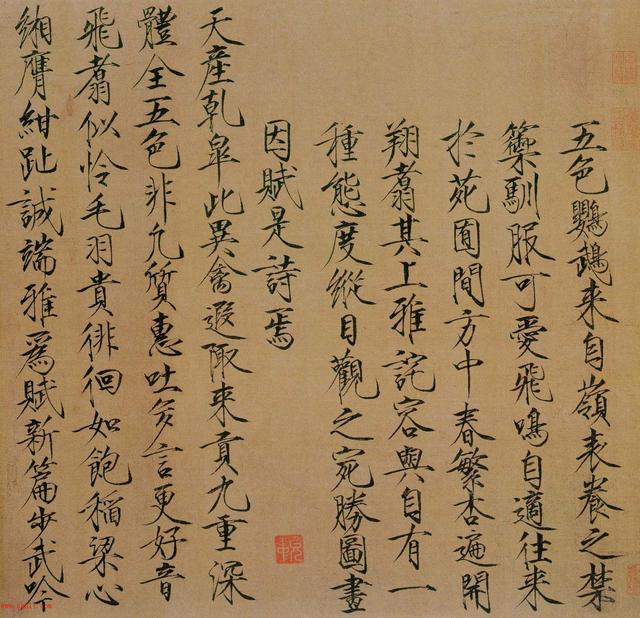 五色鸚鵡来自嶺表養之禁
籞馴服可愛飛鳴自適往来
於苑囿間方中春繁杏遍開
翔翥其上雅詫容與自有一
種態度縱目觀之宛勝圖畫
因賦是詩焉
天産乾皐此異禽遐陬来貢九重深
體全五色非凡質惠吐多言更好音
飛翥似怜毛羽貴徘徊如飽稻粱心
緗膺紺趾誠端雅爲賦新篇步武吟